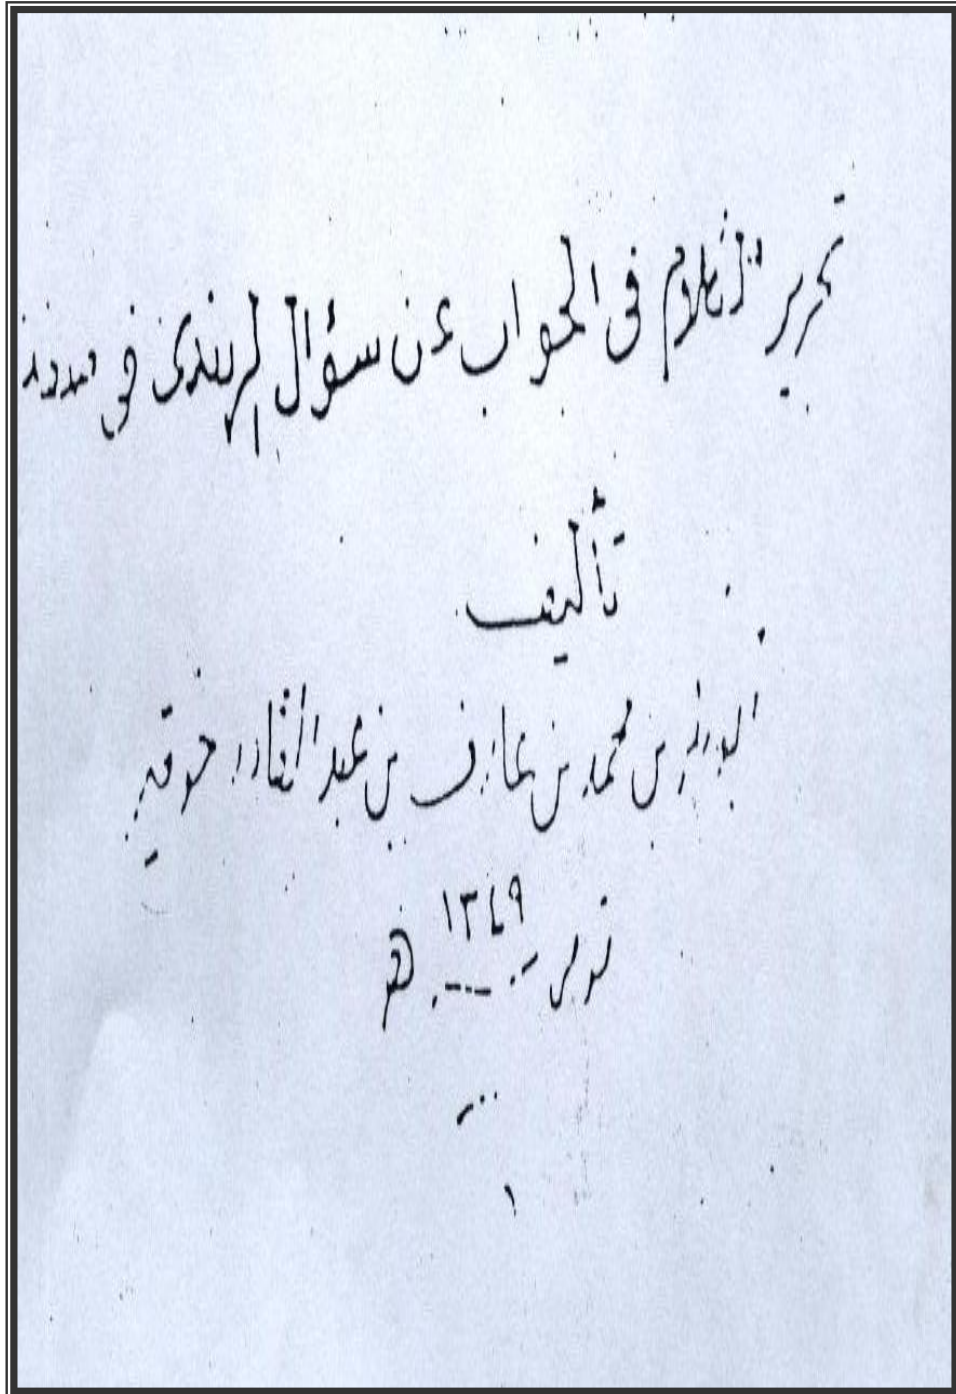 تحرير الكلام في الجواب عن سؤال الهندي في
تأليف
أبو بكر بن محمد بن عارف بن عبد القادر خوقير
توفى ١٣٤٩ هـ
١